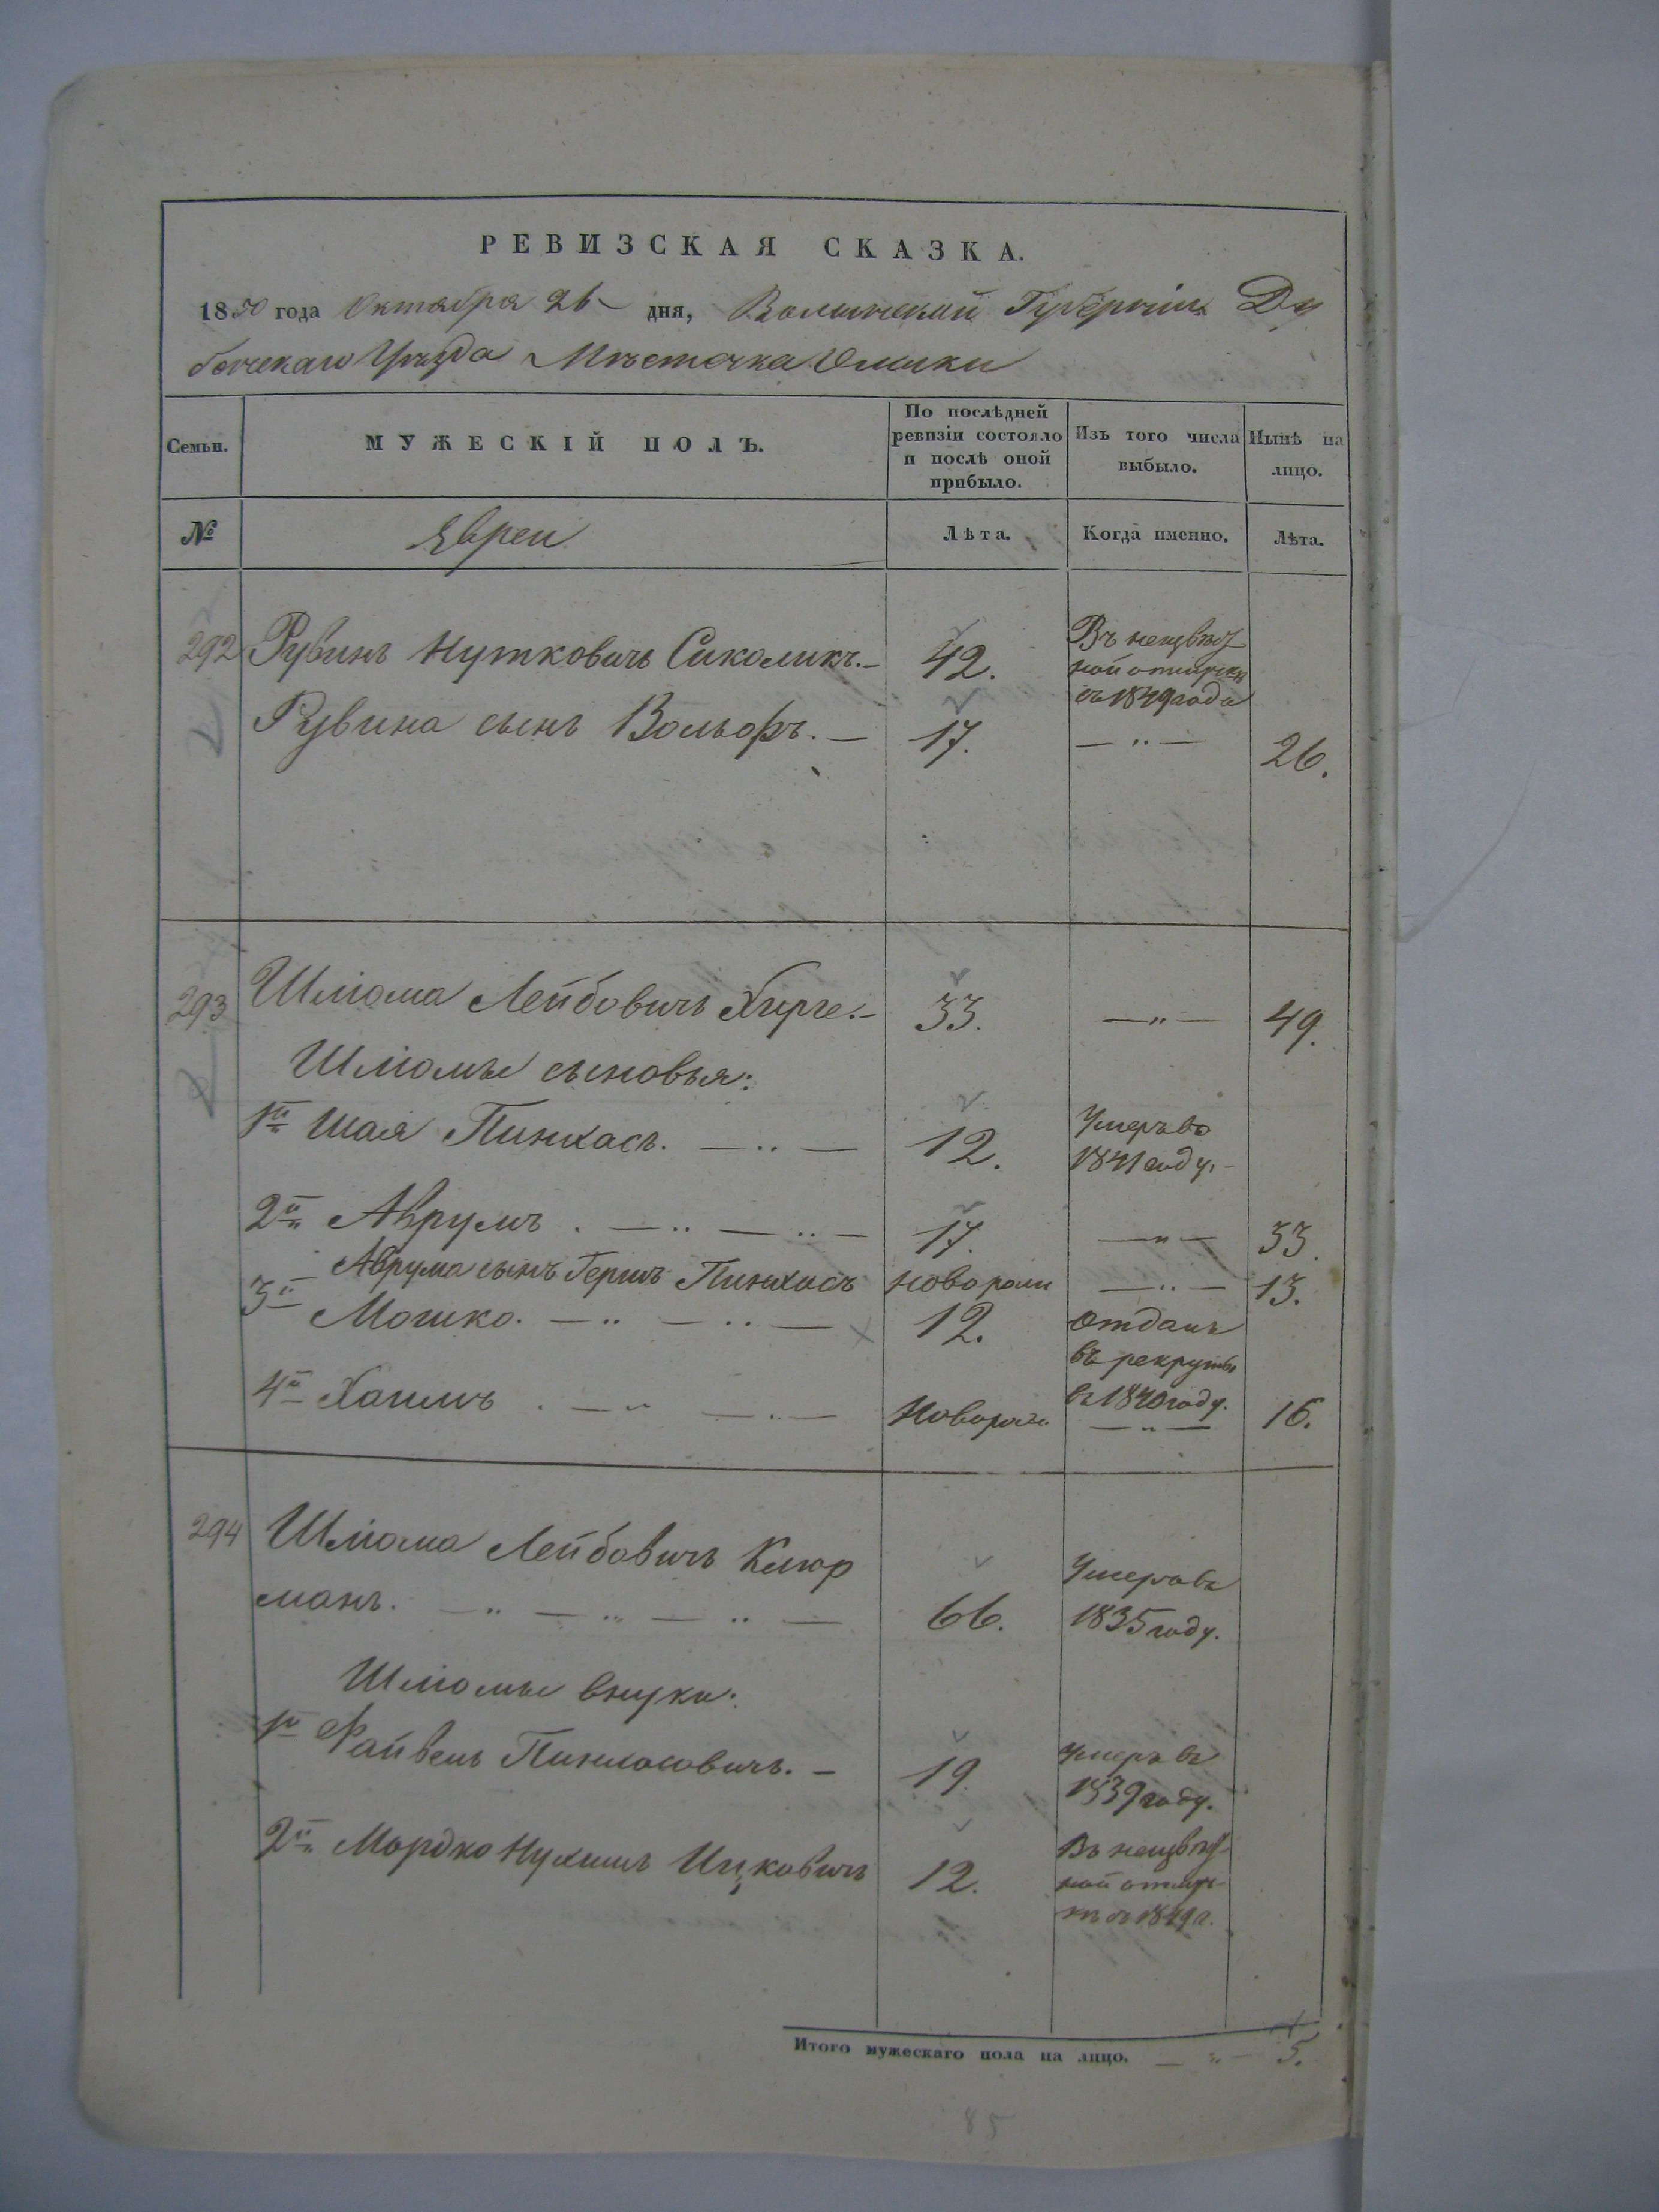 РЕВИЗСКАЯ СКАЗКА.
1850 года Октября 26 дня, Волынской Губерніи Ду
бенскаго Уѣзда Мѣстечка Олыки
Семьи.
МУЖЕСКІЙ ПОЛЪ.
По послѣдней ревизіи состояло и послѣ оной прибыло.
Изъ того числа выбыло.
Нынѣ на лицо.
№
Евреи
Лѣта.
Когда именно.
Лѣта.
292 Рувинъ Нутковичъ Сиколикъ.— 42. Въ неизвѣст
ной отлучки
съ 1849 года
Рувина сынъ Вольфъ.— 17. — „ — 26.
293 Шліома Лейбовичъ .— 33. — „ — 49.
Шліомы сыновья:
1й Шая Пинхасъ. — .. — 12. Умеръ въ
1841 году.-
2й Аврумъ . — .. — .. — 17. — „ — 33.
Аврума сынъ Гершъ Пинхасъ новорожд — .. — 13.
3й Мошко. — .. — .. — 12. отданъ
въ рекруты
въ 1840 году.
4й Хаимъ . — „ — . — Новорожд — „ — 16.
294 Шліома Лейбовичъ Клюр
манъ. — „ — „ — „ — 66. Умеръ въ
1835 году.
Шліомы внуки:
1й Файвель Пинхасовичъ. — 19. Умеръ въ
1839 году.
2й Мордко Нухимъ Ицковичъ 12. Въ неизвѣст-
ной отлуч-
кѣ съ 1849 г.
Итого мужескаго пола на лицо. — „ — 5.
85